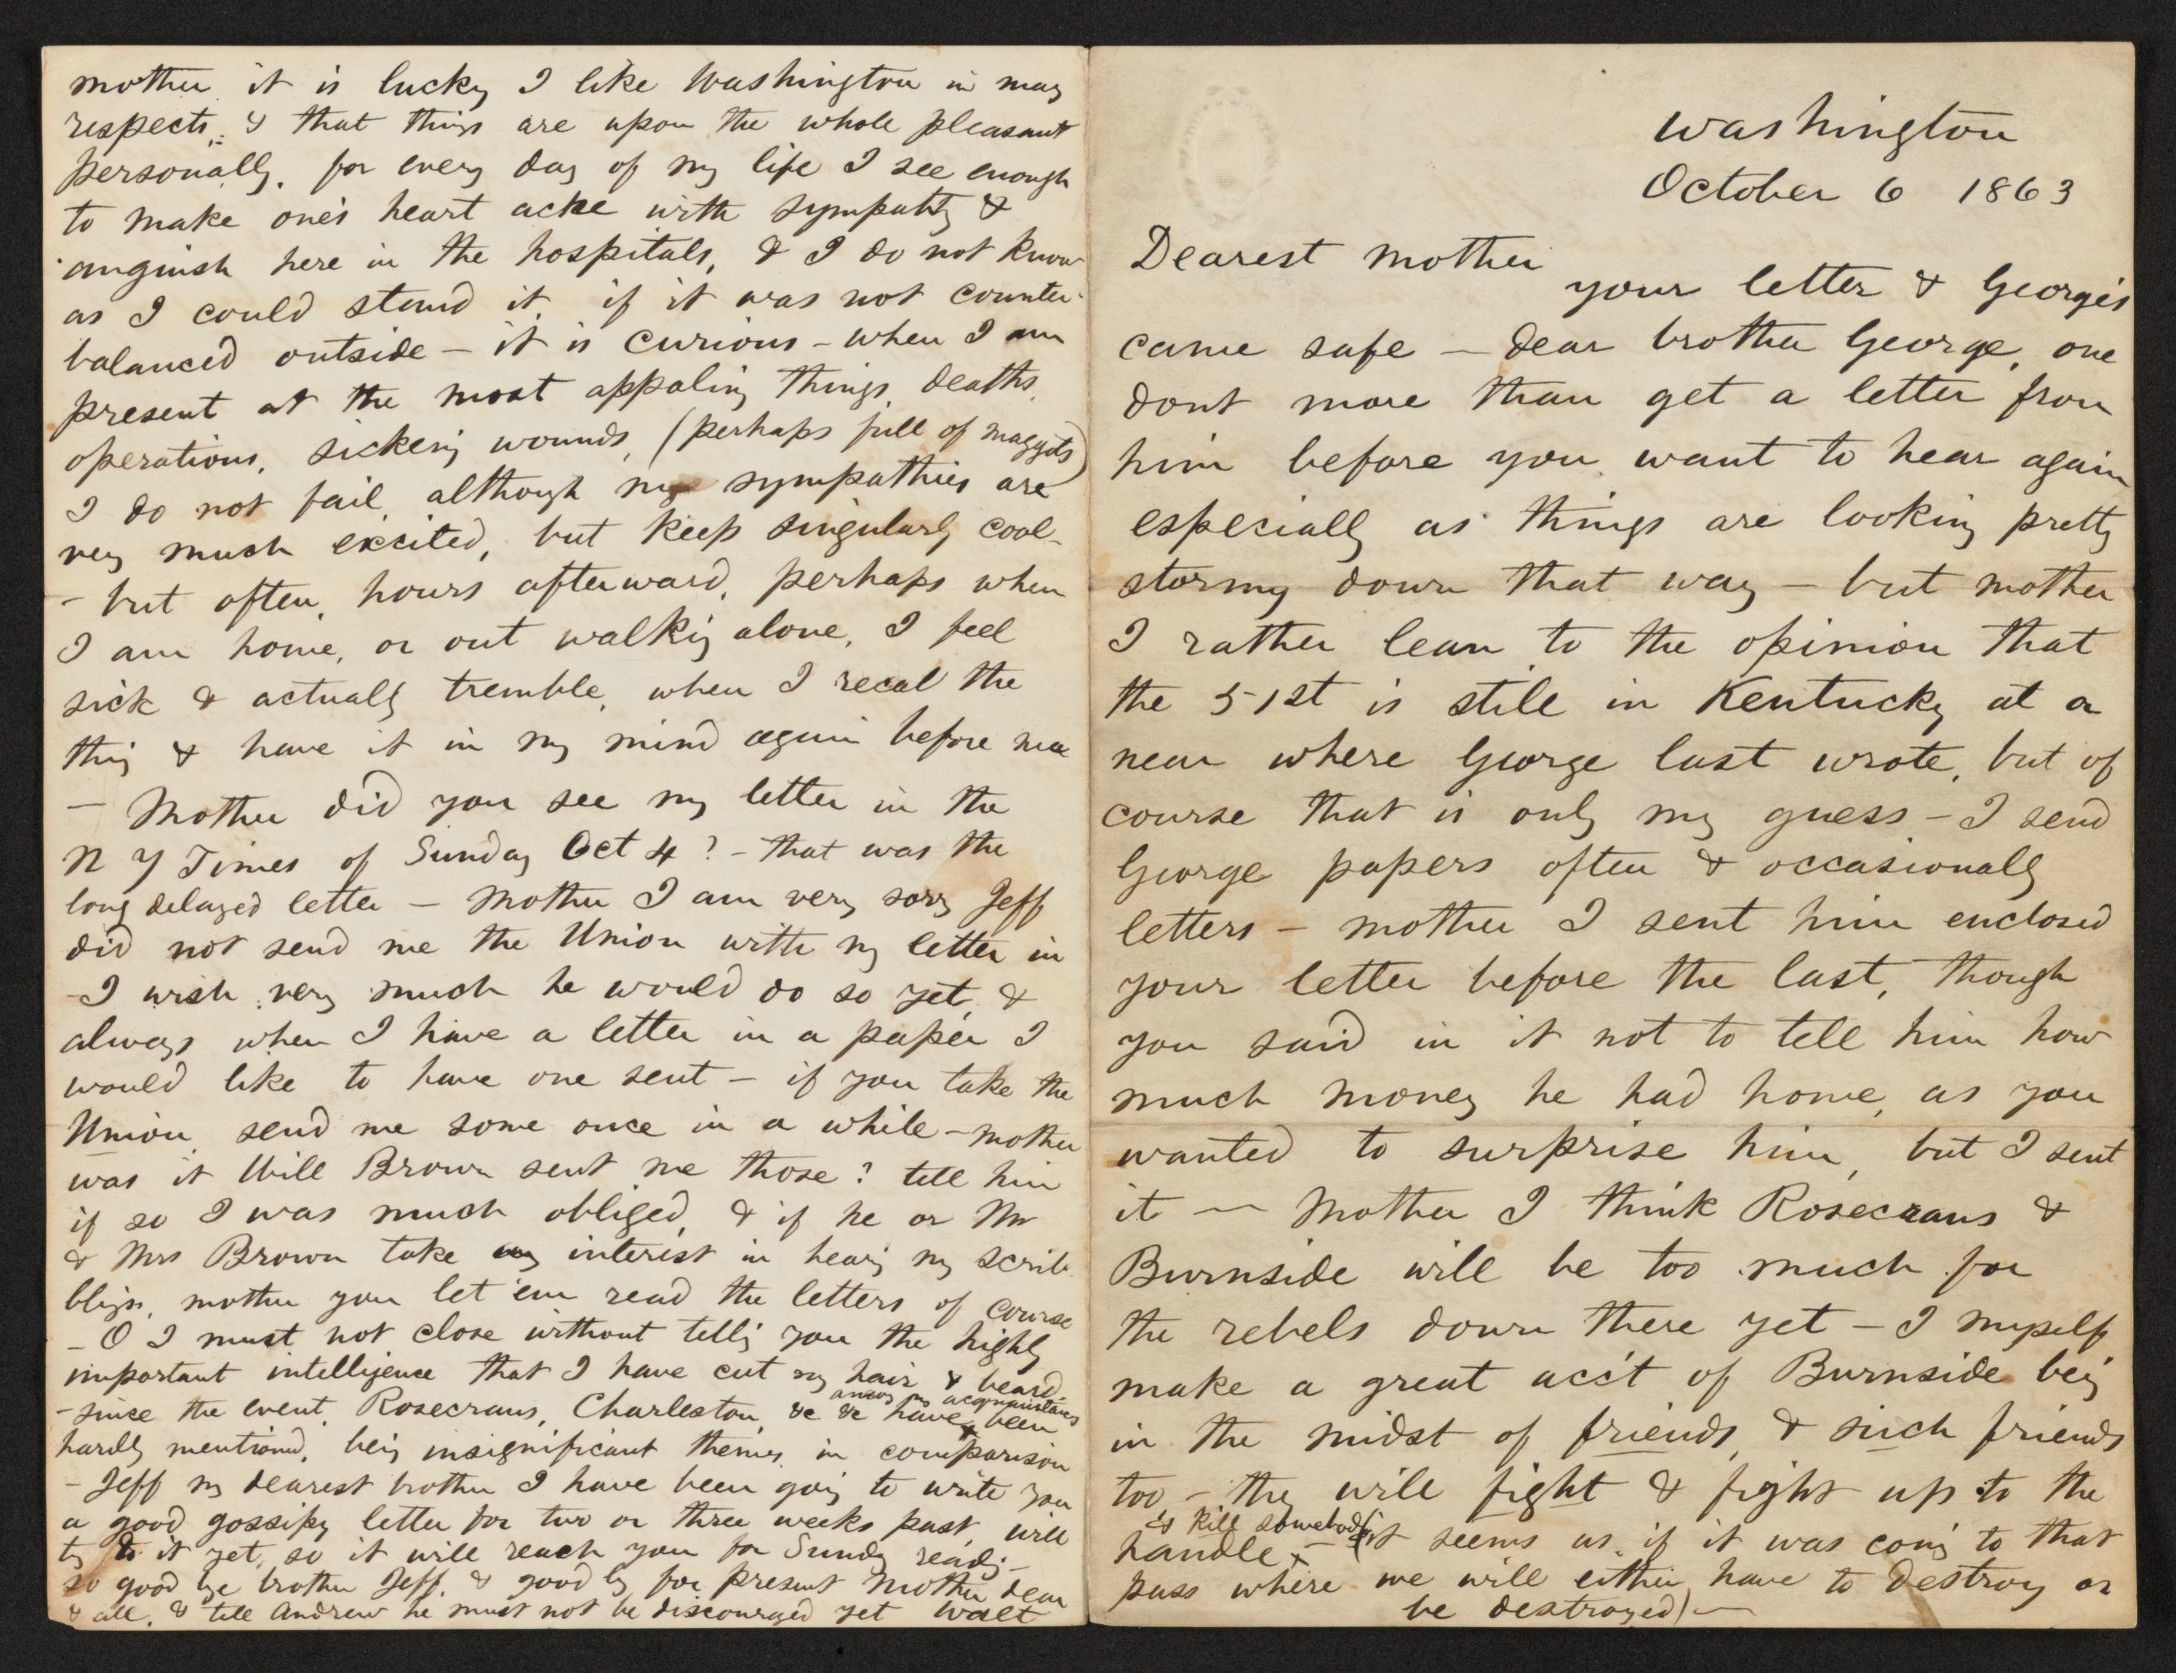 mother it is lucky I like Washington in may
respects, & that things are upon the whole pleasant
personally, for every day of my life I see enough
to make one's heart ache with sympathy &
anguish here in the hospitals, & I do not know
as I could stand it, if it was not counter-
balanced outside – it is curious – when I am
present at the most appaling things, deaths,
operations, sickening wounds, (perhaps full of maggots)
I do not fail, although my sympathies are
very much excited, but keep singularly cool –
– but often, hours afterward, perhaps when
I am home, or out walking alone, I feel
sick & actually tremble, when I recal the
thing & have it in my mind again before me
– Mother did you see my letter in the
N Y Times of Sunday Oct 4? – that was the
long delayed letter – Mother I am very sorry Jeff
did not send me the Union with my letter in
– I wish very much he would do so yet, &
always when I have a letter in a paper I
would like to have one sent – if you take the
Union, send me some once in a while – mother
was it Will Brown sent me those? tell him
if so I was much obliged, & if he or Mr
& Mrs Brown take any interest in hearing my scrib-
blings, mother you let 'em read the letters of course
– O I must not close without telling you the highly
important intelligence that I have cut my hair & beard –
– since the event, Rosecrans, Charleston, &c &c have among my acquaintances been
hardly mentioned, being insignificant themes in comparison
– Jeff my dearest brother I have been going to write you
a good gossipy letter for two or three weeks past, will
try to do it yet, so it will reach you for Sunday reading –
so good bye brother Jeff, & good by for present Mother dear
& all, & tell Andrew he must not be discouraged yet Walt
Washington
October 6 1863
Dearest mother
your letter & George's
came safe – dear brother George, one
dont more than get a letter from
him before you want to hear again
especially as things are looking pretty
stormy down that way – but mother
I rather lean to the opinion that
the 51st is still in Kentucky at or
near where George last wrote, but of
course that is only my guess – I send
George papers often & occasionally
letters – mother I sent him enclosed
your letter before the last, though
you said in it not to tell him how
much money he had home, as you
wanted to surprise him, but I sent
it — Mother I think Rosecrans &
Burnside will be too much for
the rebels down there yet – I myself
make a great acc't of Burnside being
in the midst of friends, & such friends
too – they will fight & fight up to the
handle & kill somebody – (it seems as if it was coming to that
pass where we will either have to destroy or
be destroyed) —